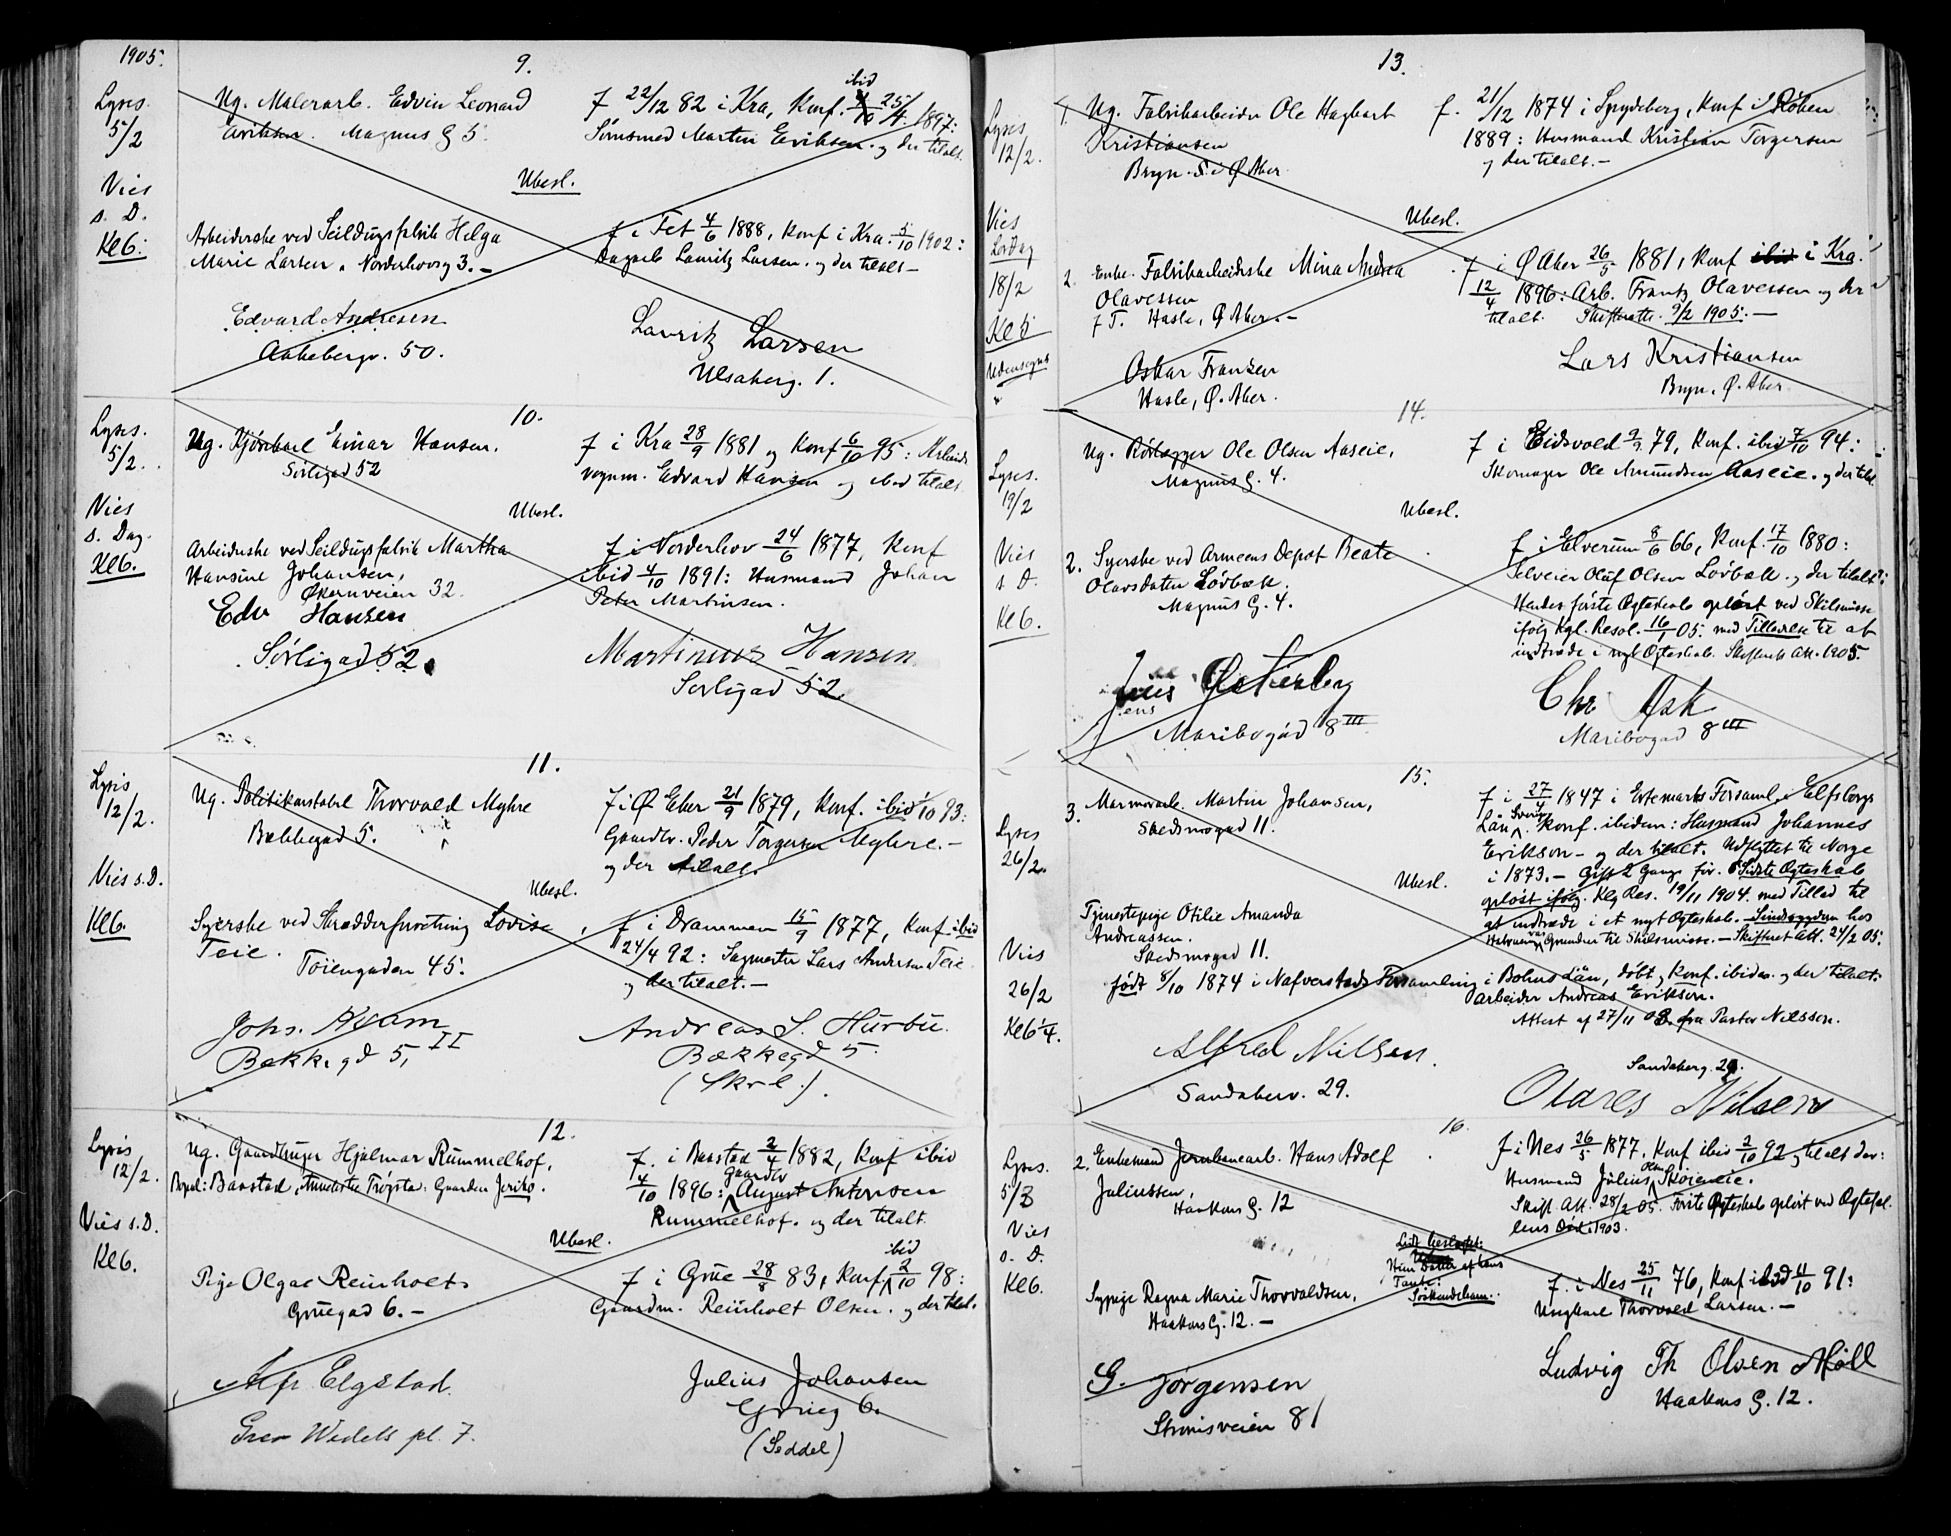 1905.
9.
Lyses.
5/2
Ug. Malerarb. Edvin Leonard
Eriksen. Magnus G 5.
ibid
f 22/12 82 i Kra, Konf. 25/4 1897:
Martin Eriksen. og der tilalt.
Vies
s. D.
Kl 6:
Ubesl.
Arbeiderske ved Seildugsfabrik Helga
Marie Larsen. Norderhovsg 3. –
f i Fet 4/6 1888, Konf i Kra. 5/10 1902:
Dagarb Lauritz Larsen. og der tilalt –
Edvard Andresen
Aakebergv. 50.
Lauritz Larsen
1.
10.
Lyses.
5/2.
Ug. Kjørekarl Einar Hansen.
Sørligad 52
f i Kra 28/9 1881 og Konf 6/10 95: Arbeids
vognm. Edvard Hansen og ibid tilalt.
Vies
s. Dag.
Kl 6.
Ubesl.
Arbeiderske ved Seildugsfabrik Martha
Hansine Johansen,
Økernveien 32.
f i Norderhov 24/6 1877, Konf
ibid 4/10 1891: Husmand Johan
Peter Martinsen.
Edv Hansen
Sørligad 52.
Martinius Hansen
Sorligad 52.
11.
Lyses
12/2.
Ug. Politikonstabel Thorvald Myhre
Bakkegad 5.
f i Ø Aker 21/9 1879, Konf. ibid 1/10 93:
Gaardbr. Peder Torgersen Myhre. –
og der tilalt.
Vies s. D.
Kl 6.
Ubesl.
Syerske ved Skrædderforretning Lovise
Teie.
Töiengaden 45.
f i Drammen 15/9 1877, Konf ibid
24/4 92: Sagmester Lars Andersen Teie
og der tilalt. –
Johs. Kvam
Bakkegd 5, II
Andreas S. Hurbu.
Bækkegd 5.
12.
Lyses
12/2.
Ug. Gaardbruger Hjalmar Rummelhof,
Bopæl: Baastad, Trøgstad: Gaarden Jeriko.
f. i Baastad 2/4 1882, Konf ibid
Gaardbr
4/10 1896: August Antonsen
Rummelhof. og der tilalt.
Vies s. D.
Kl 6.
Ubesl.
Pige Olga Reinholt
Gruegad 6. –
ibid
f i Grue 28/8 83, Konf 2/10 98:
Gaardm. Reinholt Olsen. og der tilal.
Alfr Elgstad.
Grev Wedels pl. 7.
Julius Johansen
Grueg 6.
(Seddel)
13.
Lyses
12/2.
1. Ug. Fabrikarbeider Ole Hagbart
Kristiansen
Bryn. S. i Ø Aker.
f. 21/12 1874 i Spydeberg, Konf i Røken
1889: Husmand Kristian Torgersen
og der tilalt. –
Vies
Lørdag
18/2
Kl 5
Udensogns
Ubesl.
2. Enke. Fabrikarbeiderske Mina Andrea
Olavessen
f T. Hasle, Ø Aker. –
f i Ø Aker 26/5 1881, Konf ibid i Kra.
12/4 1896: Arb. Frantz Olavessen og der
tilalt. Skifteratt. 9/2 1905. –
Oskar Franzen
Hasle, Ø. Aker.
Lars Kristiansen
Bryn, Ø. Aker.
14.
Lyses.
19/2
Ug. Rørlægger Ole Olsen Aaseie,
Magnus G. 4.
f i Eidsvold 9/9 79, Konf. ibid 7/10 94:
Skomager Ole Amundsen Aaseie. og der tilal.
Vies
s D.
Kl 6.
Ubesl.
2. Syerske ved Armeens Depot Beate
Olavsdatter Lövbæk.
Magnus G. 4.
f i Elverum 8/6 66, Konf. 17/10 1880:
Selveier Oluf Olsen Lovbæk og der tilalt:
Hendes første Ægteskab opløst ved Skilsmisse
ifølg Kgl. Resol. 16/1 05. med Tilladelse til at
indtræde i nyt Ægteskab. Skifteratt. 1905.
Maribogad 8 III
Chr Ask
Maribogad 8 III
15.
Lyses
26/2.
3. Marmorarb. Martin Johansen,
Skedsmogad 11.
f i 27/4 1847 i Ertemarks Forsaml. Elfsborgs
Län Sverige Konf. ibidem: Husmand Johannes
Erikson – og der tilalt. Udflyttet til Norge
i 1873. – Gift 2 Gange før. Sidste Ægteskab
opløst ifølg. Klg Res. 19/11 1904. med Tillad til
at indtræde i et nyt Ægteskab. – Sindssygdom hos
Hustruen var Grunden til Skilsmisse. – Skifteret Att. 24/2 05.
Ubesl.
Vies
26/2
Kl 6 1/4.
Tjenestepige Otilie Amanda
Andreassen.
Skedsmogad 11.
født 8/10 1874 i Nafverstads Forsamling i Bohus Län, döbt, Konf. ibidm. og der tilalt:
Arbeider Andreas Erikson.
Attest af 27/11 fra Pastor Nilsson.
Alfred Nilsen.
Sandaberv. 29.
Sandaberg. 29.
Olares Nilsen
16.
Lyses.
5/3
2. Enkemand Jernbanearb. Hans Adolf
Juliussen,
Haakons G. 12
f i Nes 26/5 1877, Konf ibid 2/10 92 og tilalt der:
Husmand Julius Olsen Skoieneie.
Skift. Att. 28/2 05. Første Ægteskab opløst ved Ægtefæl
lens Død. 1903.
Vies
s. D.
Kl 6.
Hun Datter af hans
Tante:
Søskendebarn.
Sypige Ragna Marie Thorvaldsen,
Haakons G. 12. –
f. i Nes 25/11 76, Konf ibid 11/10 91:
Ungkarl Thorvald Larsen. –
G. Jørgensen
Strømsveien 81
Ludvig Th Olsen Moll
Haakons G. 12.